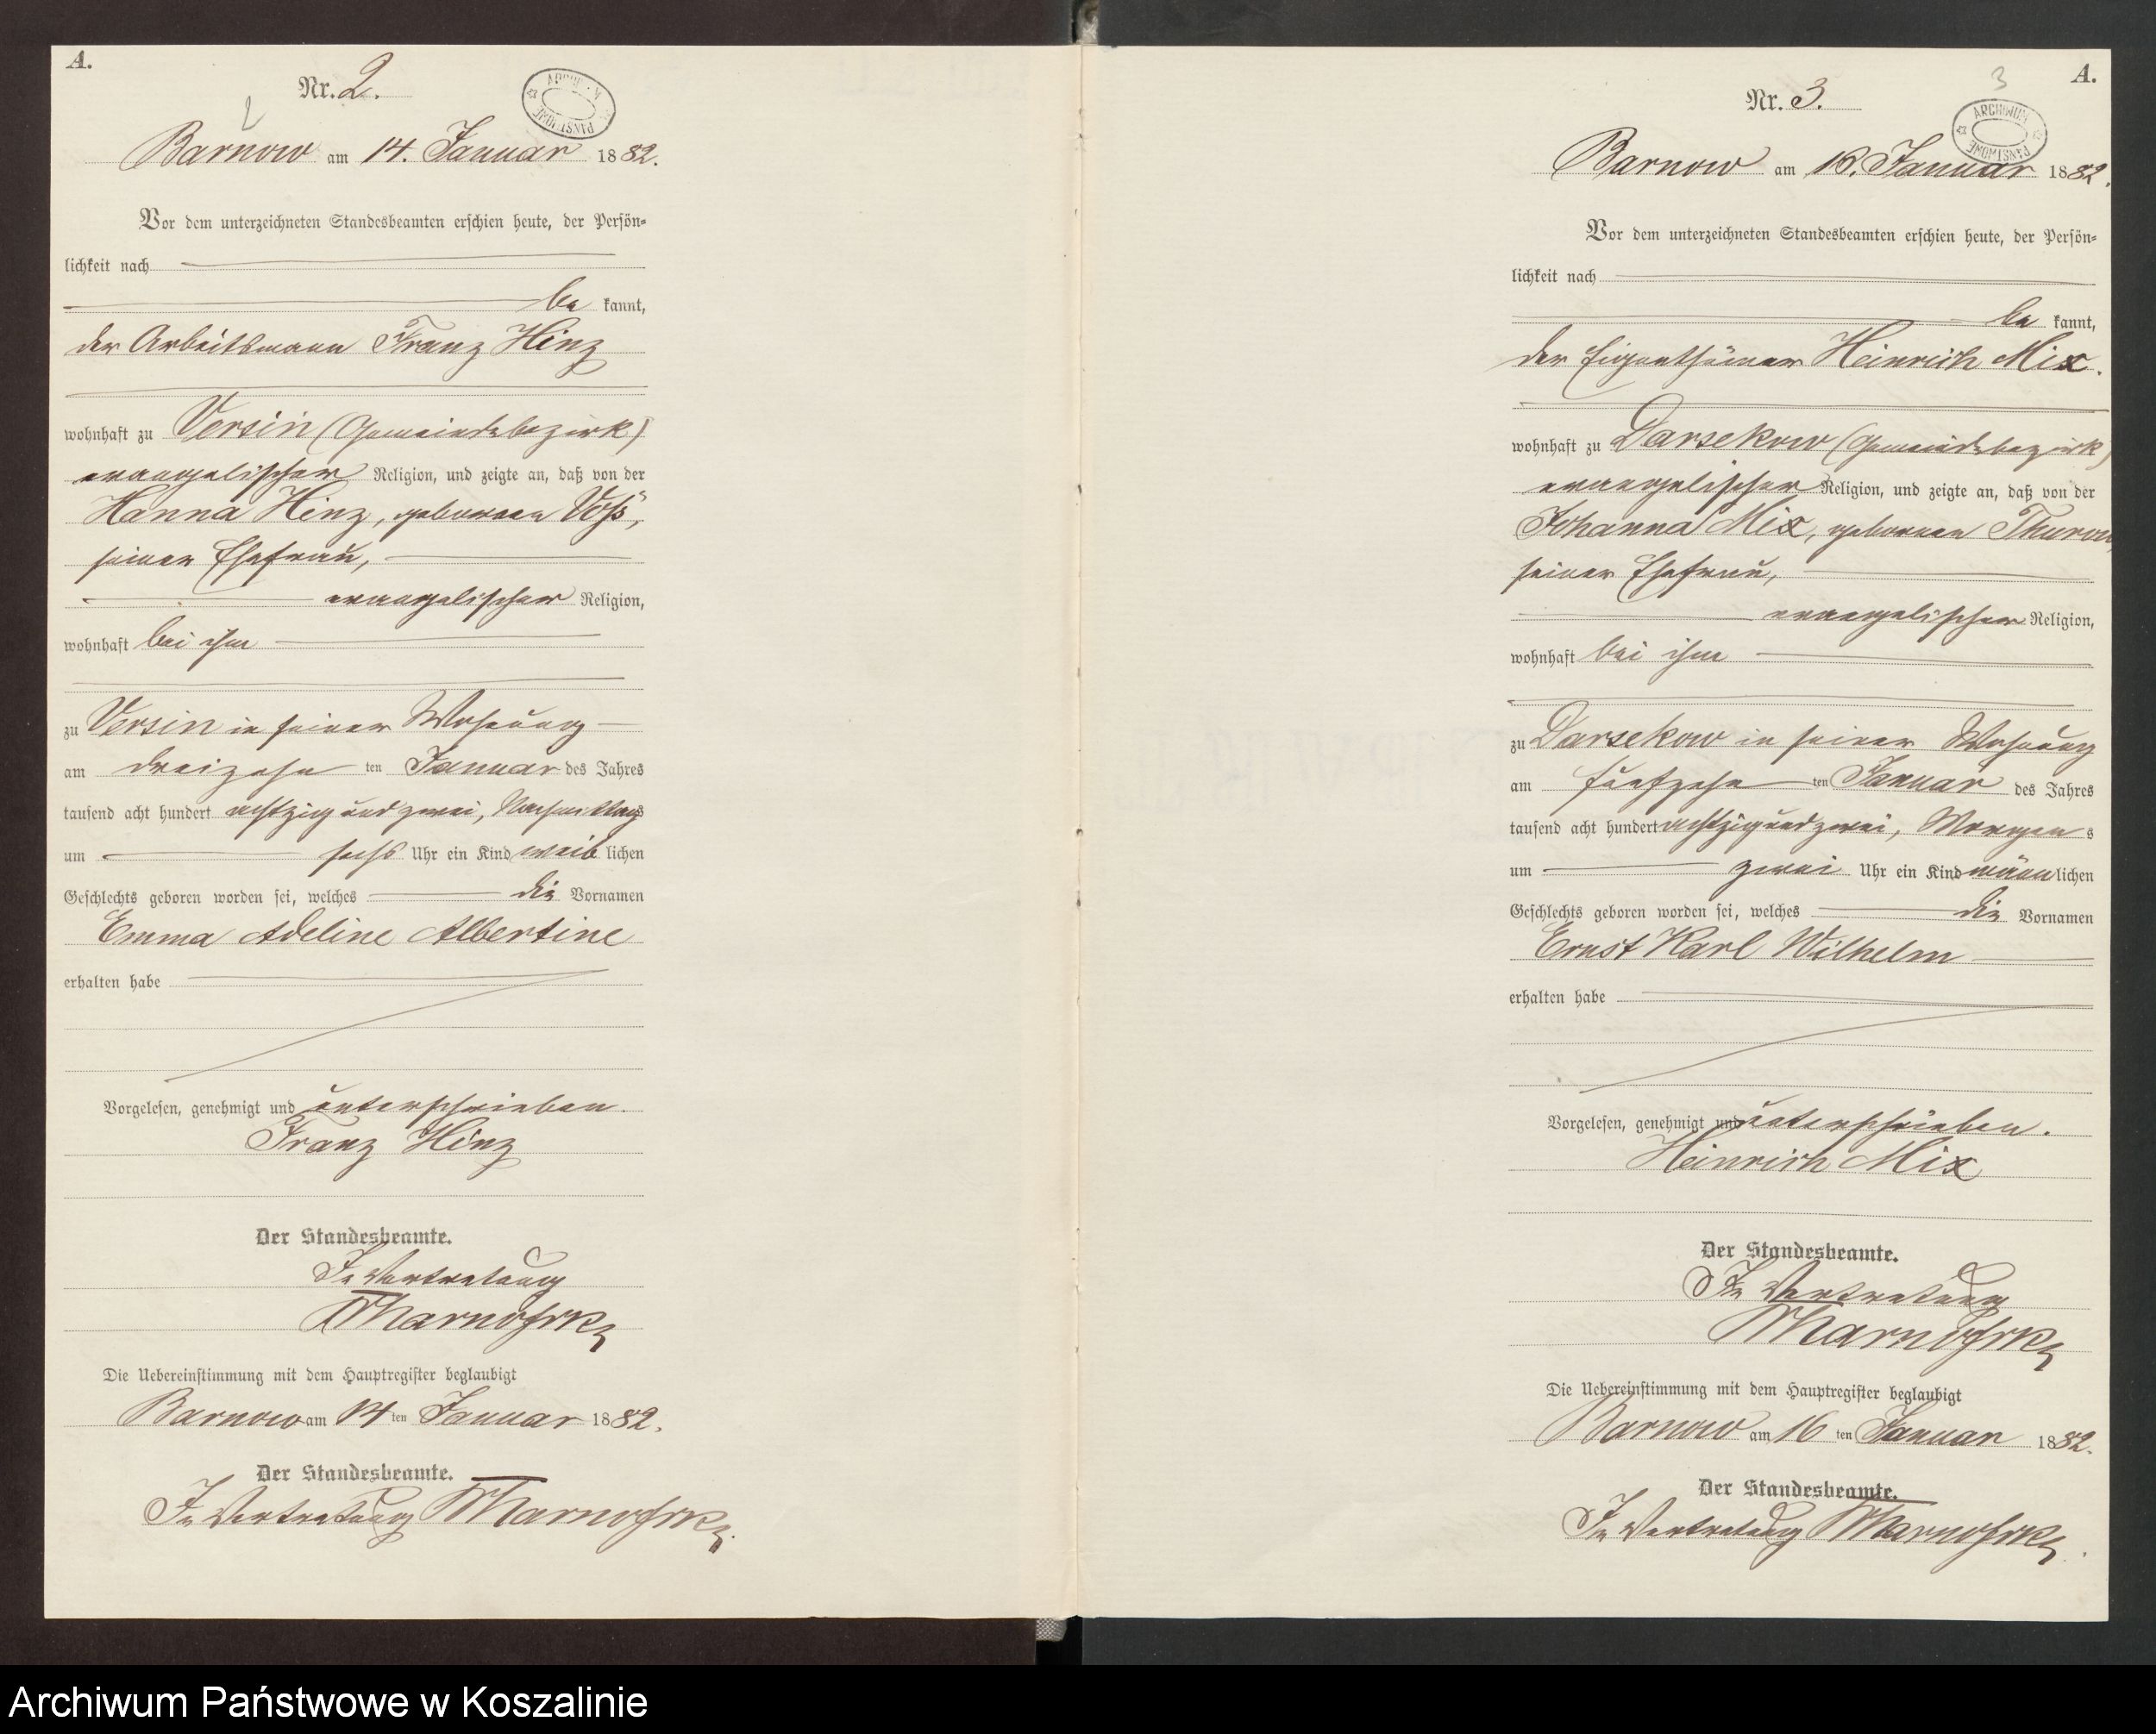 A.
Nr. 2.
2
ARCHIWUM PAŃSTWOWE
Barnow am 14. Januar 1882.
Vor dem unterzeichneten Standesbeamten erschien heute, der Persön-
lichkeit nach
be kannt,
der Arbeitsmann Franz Hinz
wohnhaft zu Versin (Gemeindebezirk)
evangelischer Religion, und zeigte an, daß von der
Hanna Hinz, geborenen Voß,
seiner Ehefrau,
evangelischer Religion,
wohnhaft bei ihm
zu Versin in seiner Wohnung
am dreizehn ten Januar des Jahres
tausend acht hundert achtzig und zwei, Nachmittags
um sechs Uhr ein Kind weib lichen
Geschlechts geboren worden sei, welches die Vornamen
Emma Adeline Albertine
erhalten habe
Vorgelesen, genehmigt und unterschrieben.
Franz Hinz
Der Standesbeamte.
In Vertretung
Die Uebereinstimmung mit dem Hauptregister beglaubigt
Barnow am 14 ten Januar 1882.
Der Standesbeamte.
In Vertretung
A.
3
Nr. 3.
ARCHIWUM PAŃSTWOWE
Barnow am 16. Januar 1882.
Vor dem unterzeichneten Standesbeamten erschien heute, der Persön-
lichkeit nach
be kannt,
der Eigenthümer Heinrich Mix.
wohnhaft zu Darsekow (Gemeindebezirk)
evangelischer Religion, und zeigte an, daß von der
Johanna Mix, geborenen Thurow,
seiner Ehefrau,
evangelischer Religion,
wohnhaft bei ihm
zu Darsekow in seiner Wohnung
am fünfzehn ten Januar des Jahres
tausend acht hundert achtzig und zwei, Morgen s
um zwei Uhr ein Kind männ lichen
Geschlechts geboren worden sei, welches die Vornamen
Ernst Karl Wilhelm
erhalten habe
Vorgelesen, genehmigt und unterschrieben.
Heinrich Mix
Der Standesbeamte.
In Vertretung
Die Uebereinstimmung mit dem Hauptregister beglaubigt
Barnow am 16 ten Januar 1882.
Der Standesbeamte.
In Vertretung
Archiwum Państwowe w Koszalinie